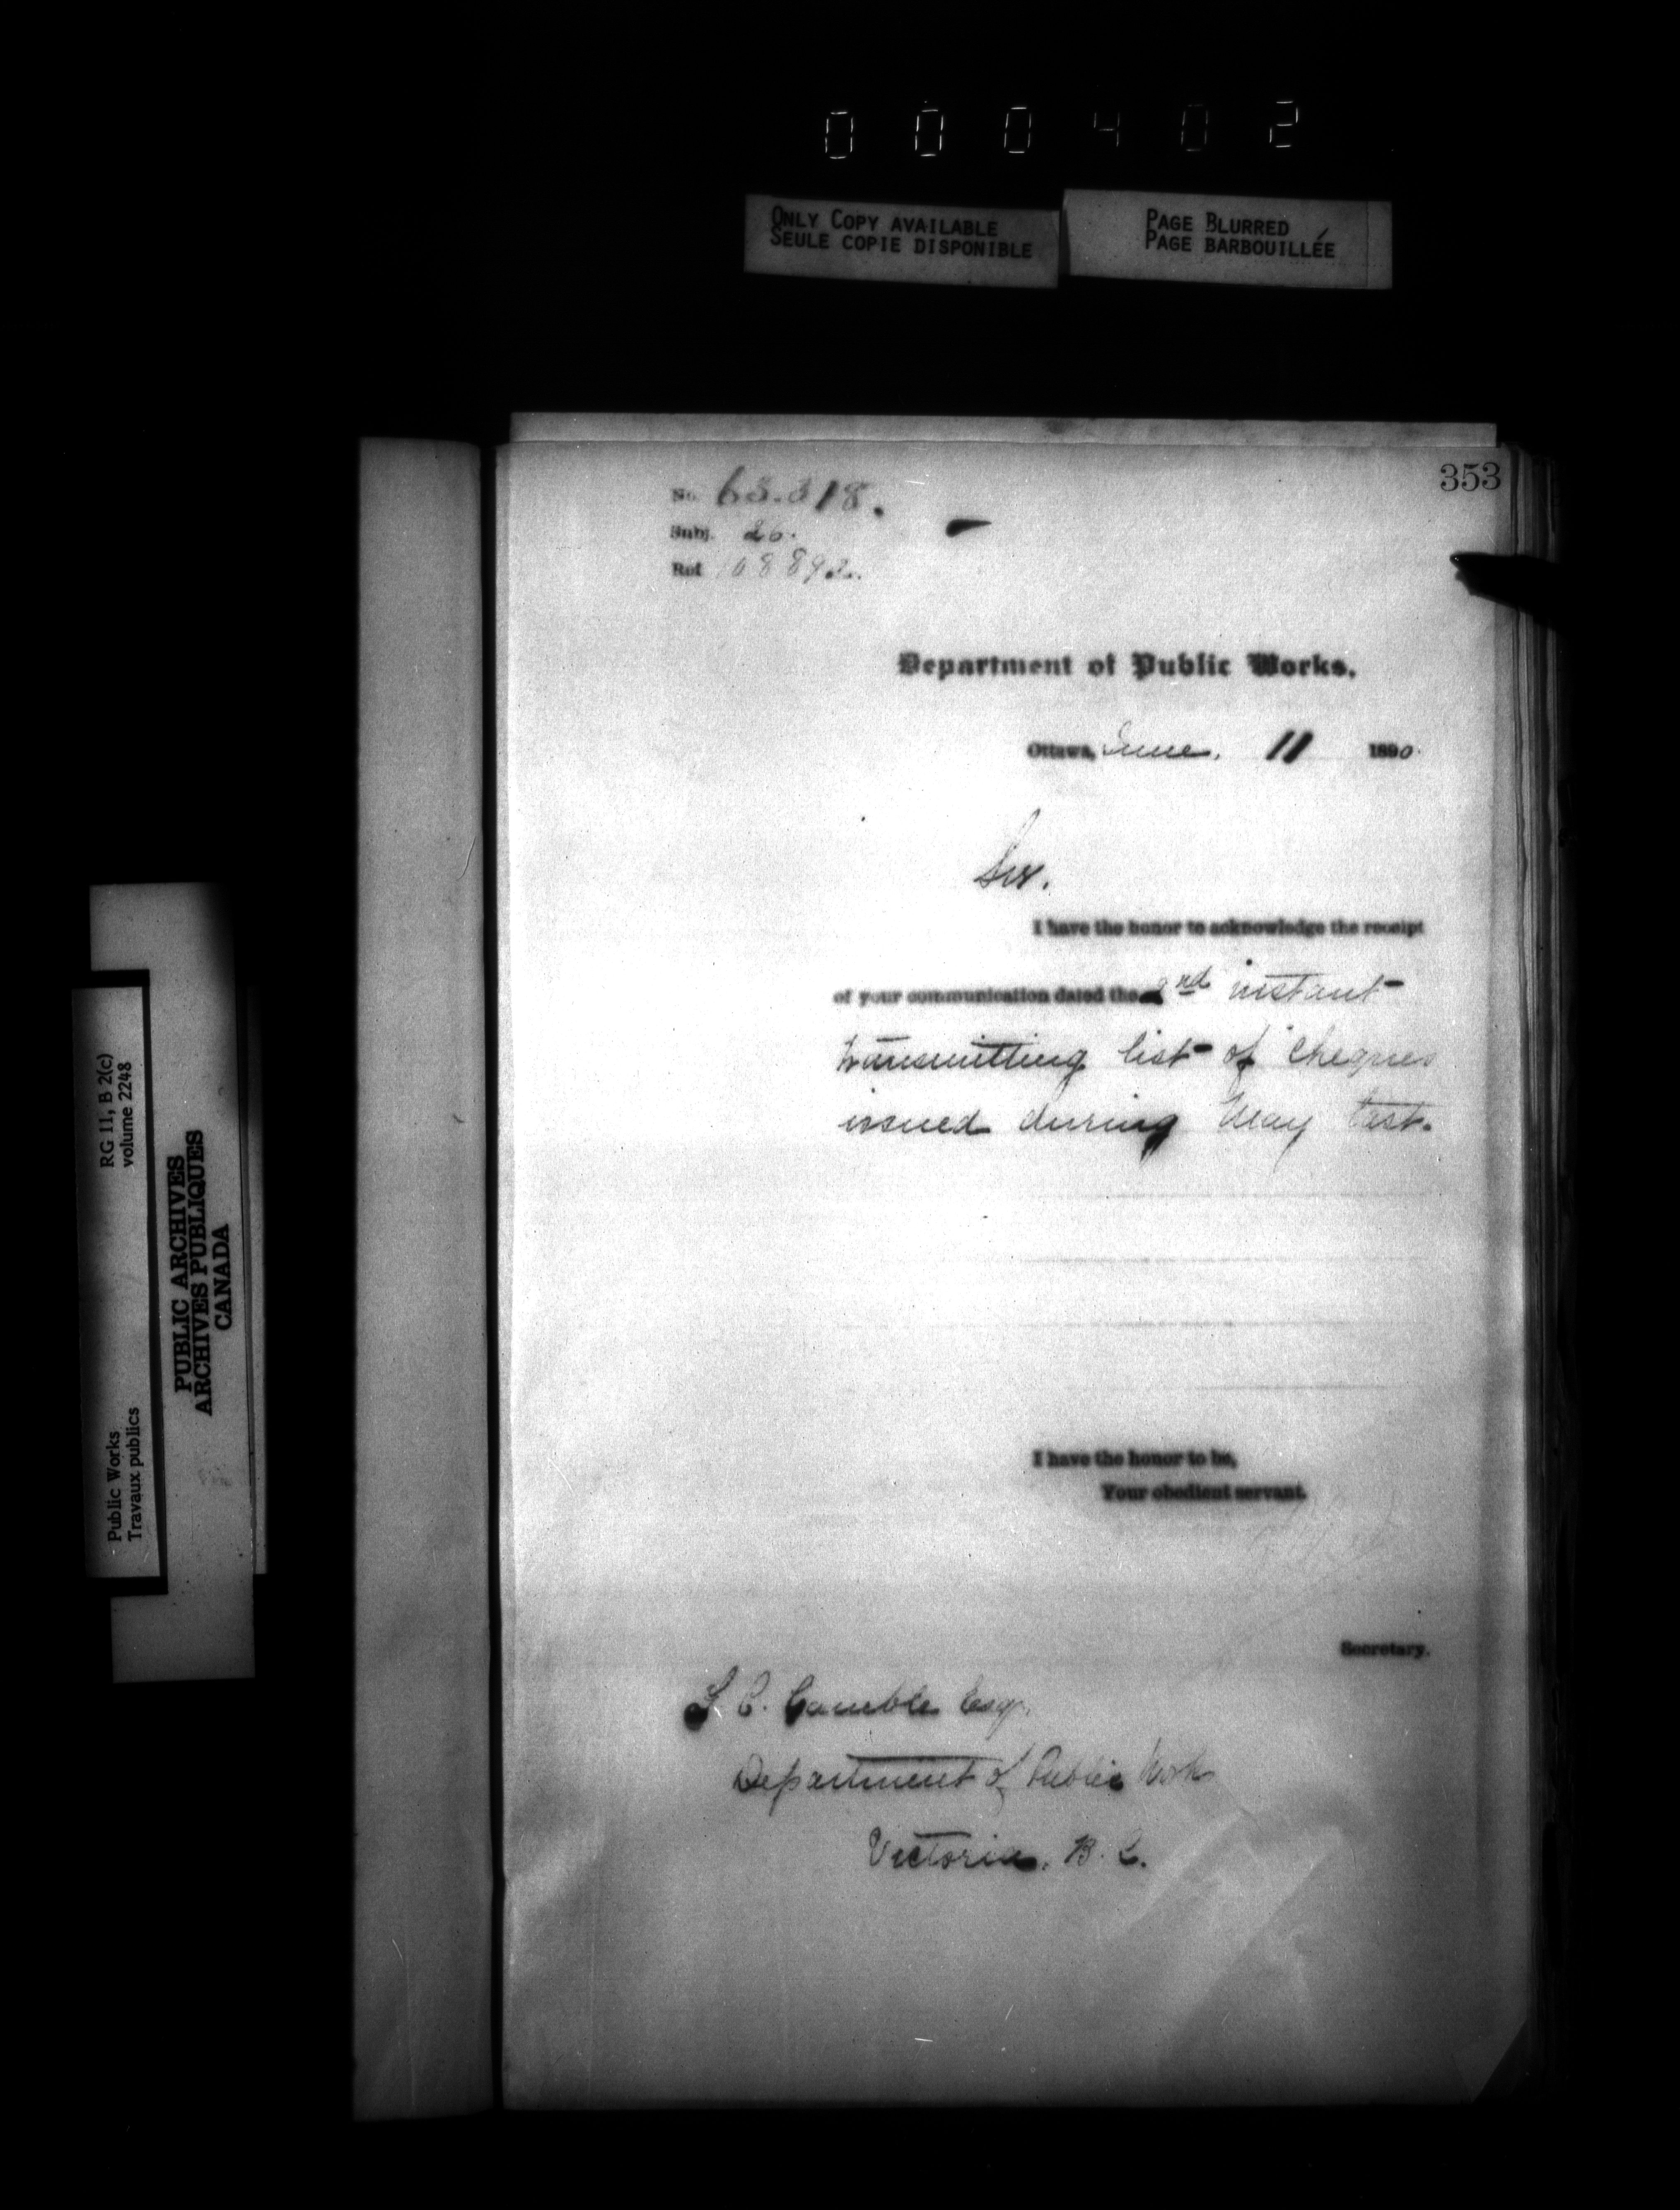 000402
ONLY COPY AVAILABLE
SEULE COPIE DISPONIBLE
PAGE BLURRED
PAGE BARBOUILLÉE
353
No. 63.318.
Subj. 26.
Ref 108892.
Department of Public Works.
Ottawa, June. 11 1890.
Sir.
I have the honor to acknowledge the receipt
of your communication dated the 2nd instant
transmitting list of cheques
issued during May last.
I have the honor to be,
Your obedient servant.
Secretary.
F. C. Gamble Esqr.
Department of Public Works
Victoria, B. C.
RG 11, B 2(c)
volume 2248
Public Works
Travaux publics
PUBLIC ARCHIVES
ARCHIVES PUBLIQUES
CANADA